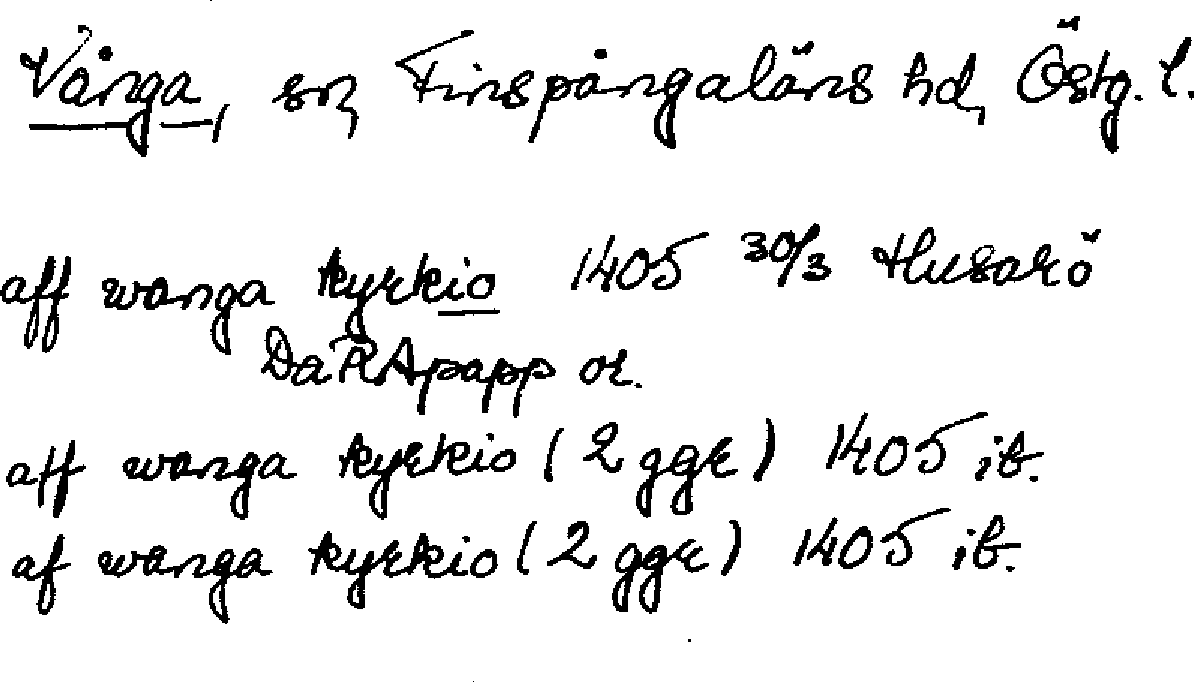 Vånga, sn, Finspångaläns hd, Östg. l.
aff wanga kyrkio 1405 30/3 Husarö
Da RApapp or.
aff wanga kyrkio (2 ggr) 1405 ib.
af wanga kyrkio (2 ggr) 1405 ib.